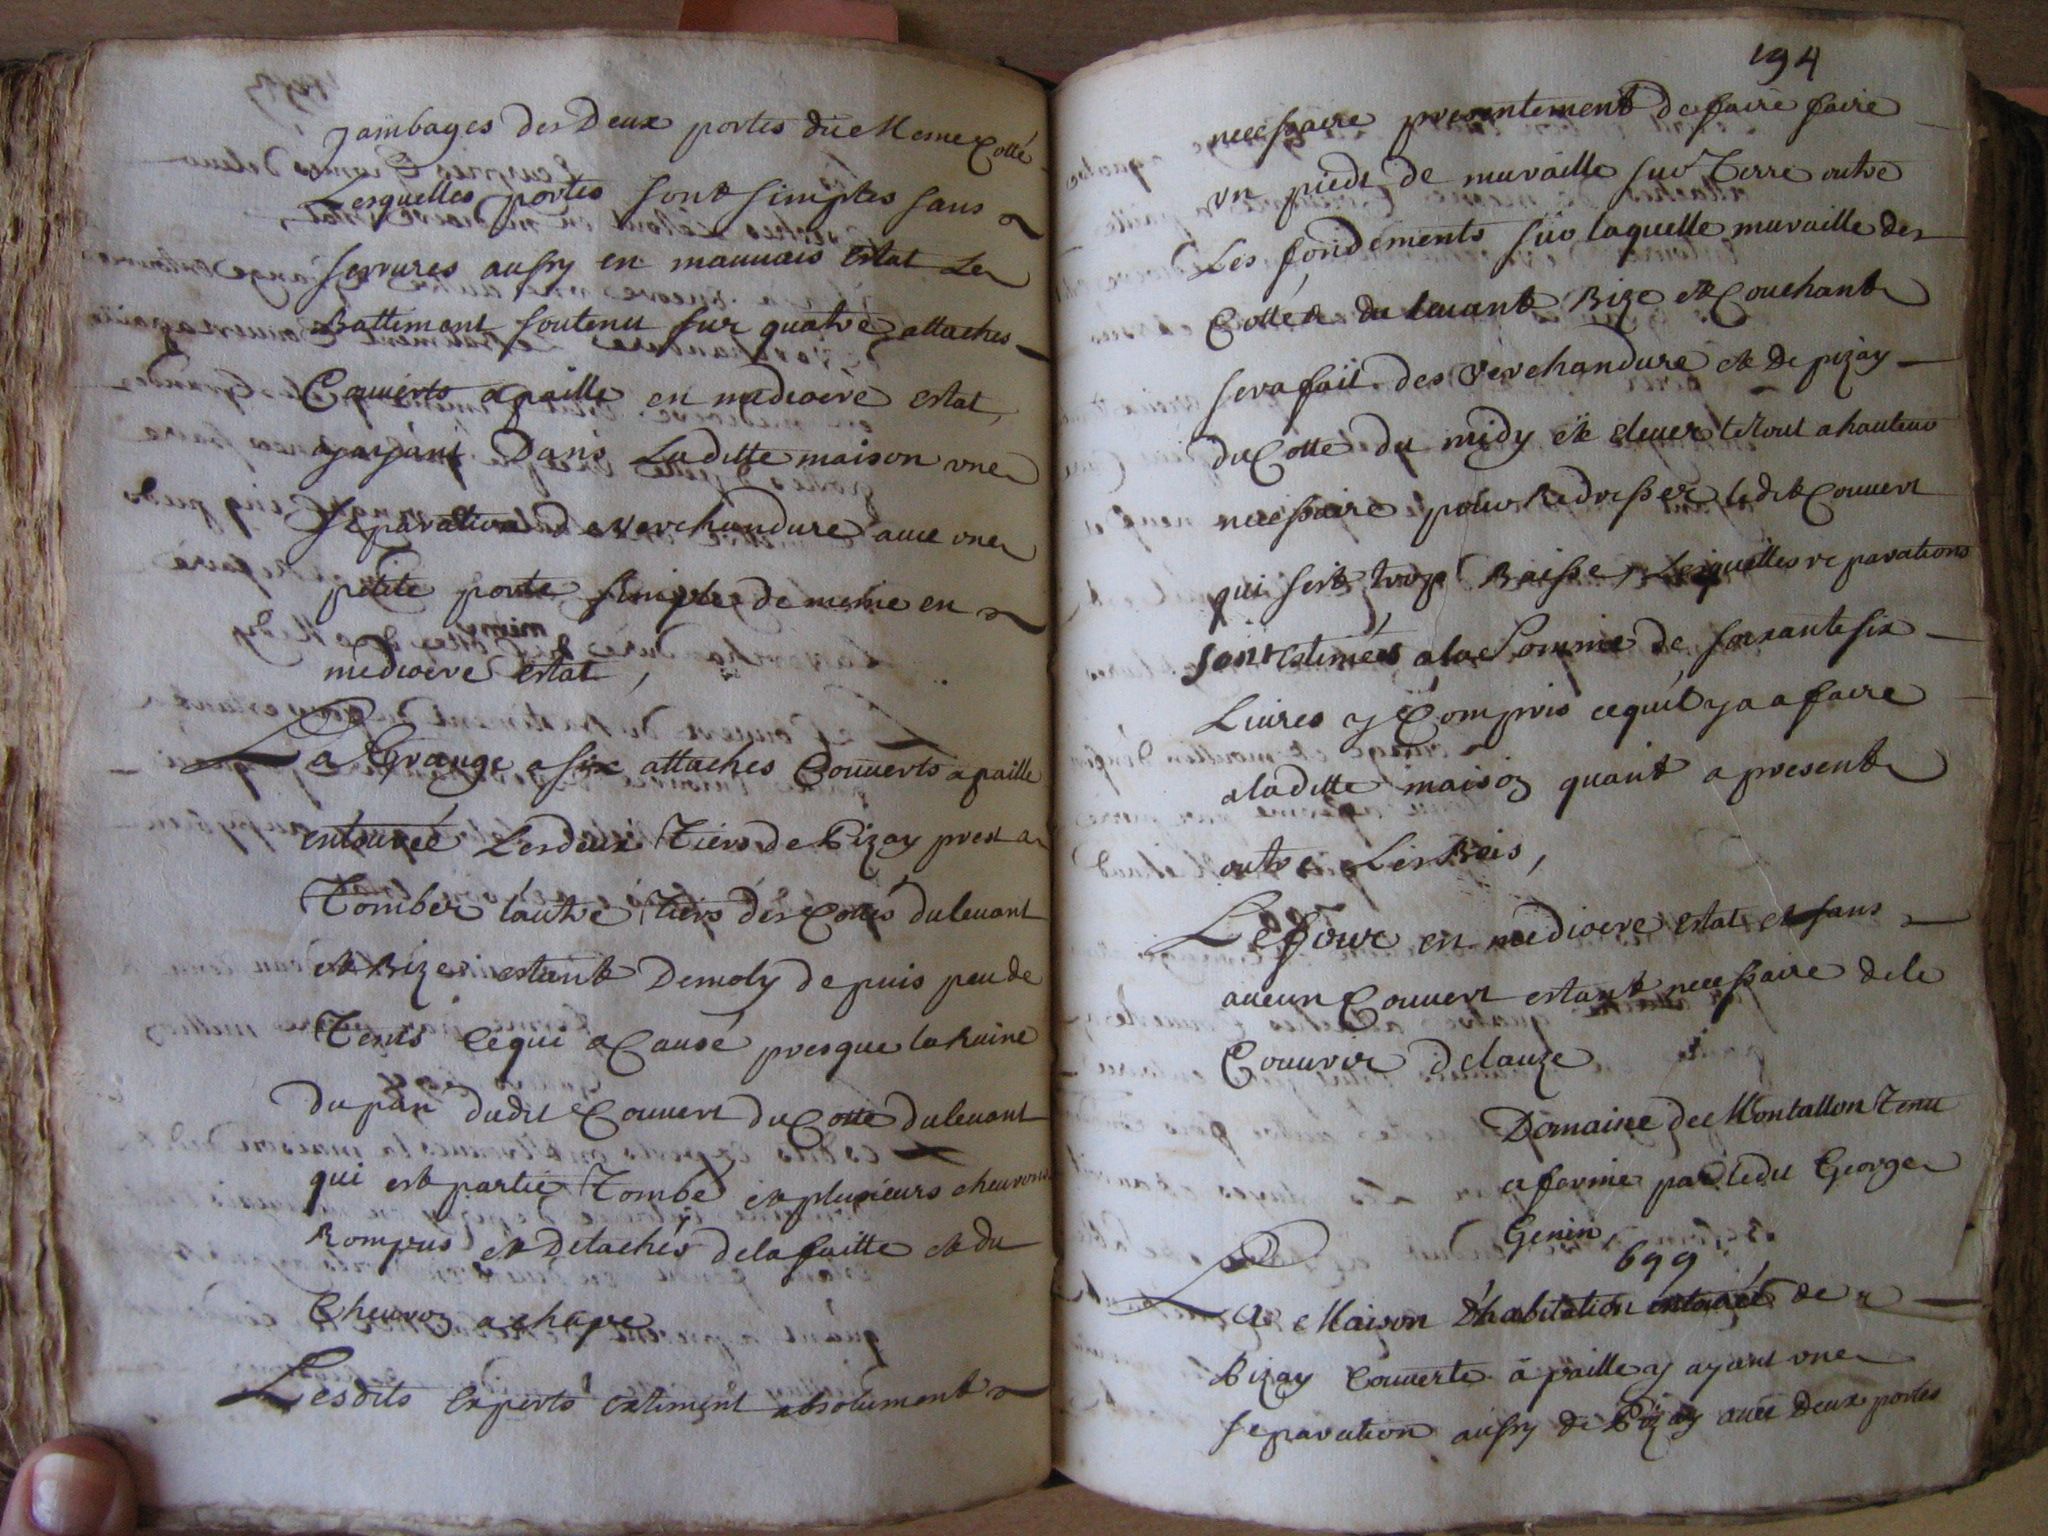 jambages des Deux portes du Meme Cotté
Lesquelles portes sont simples sans
serrures aussy en mauuais estat Le
Battiment soutenu sur quatre attaches
Couuerts a paille en mediocre estat,
ayayant Dans Laditte maison vne
separation de verchandure auec vne
petite porte simple de meme en
mediocre estat,
La Grange a six attaches Couuerts a paille
entourée Les deux Tiers de Pizay prest a
Tomber lautre Tiers des Cottés du leuant
et Bize estant Demoly depuis peu de
Tems Ce qui a Causé presque la Ruine
du pan dudit Couuert du Cotte du leuant
qui est partie Tombé et plusieurs cheurons
Rompus et Detachés de la faitte et du
Cheuron a chape
Lesdits Experts estiment absolument
194
necessaire presentement de faire faire
vn pieds de muraille sur Terre outre
Les fondements sur laquelle muraille des
Cottés du leuant Bize et Couchant
sera fait des verchandure et De pizay
du Cotte du midy et eleuer le tout a hauteur
necessaire pour Redresser ledit Couuert
qui sert trop Baisse, Lesquelles reparations
sont Estimées a la Somme de soixante six
Liures y Compris ce quil y a a faire
a laditte maison quant a present
outre Les Bois,
Le four en mediocre estat et sans
aucun Couuert estant necessaire de le
Couurir de lauze
Domaine de Montallon Tenu
a ferme par ledit George
Genin,
699
La Maison D'habitation entouree de
Bizay Couuerte à paille y ayant vne
separation aussy de Pizay auec Deux portes